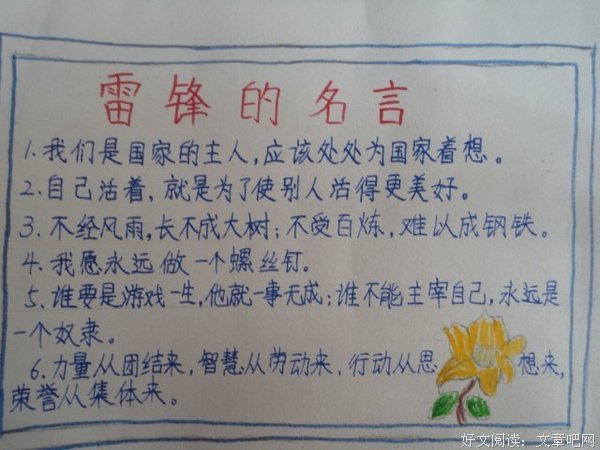 雷锋的名言
1.我们是国家的主人,应该处处为国家着想。
2.自己活着,就是为了使别人活得更美好。
3.不经风雨,长不成大树;不受百炼,难以成钢铁。
4.我愿永远做一个螺丝钉。
5、谁要是游戏一生,他就一事无成;谁不能主宰自己,永远是
一个奴隶。
6.力量从团结来,智慧从劳动来,行动从思想来,
荣誉从集体来。
好文阅读:文章吧网